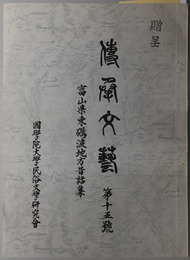 贈呈
傳承文藝
第十五號
富山県東礪波地方昔話集
國學院大學民俗文學研究會